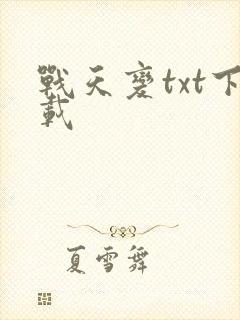 戰天變txt下
載
夏雪舞